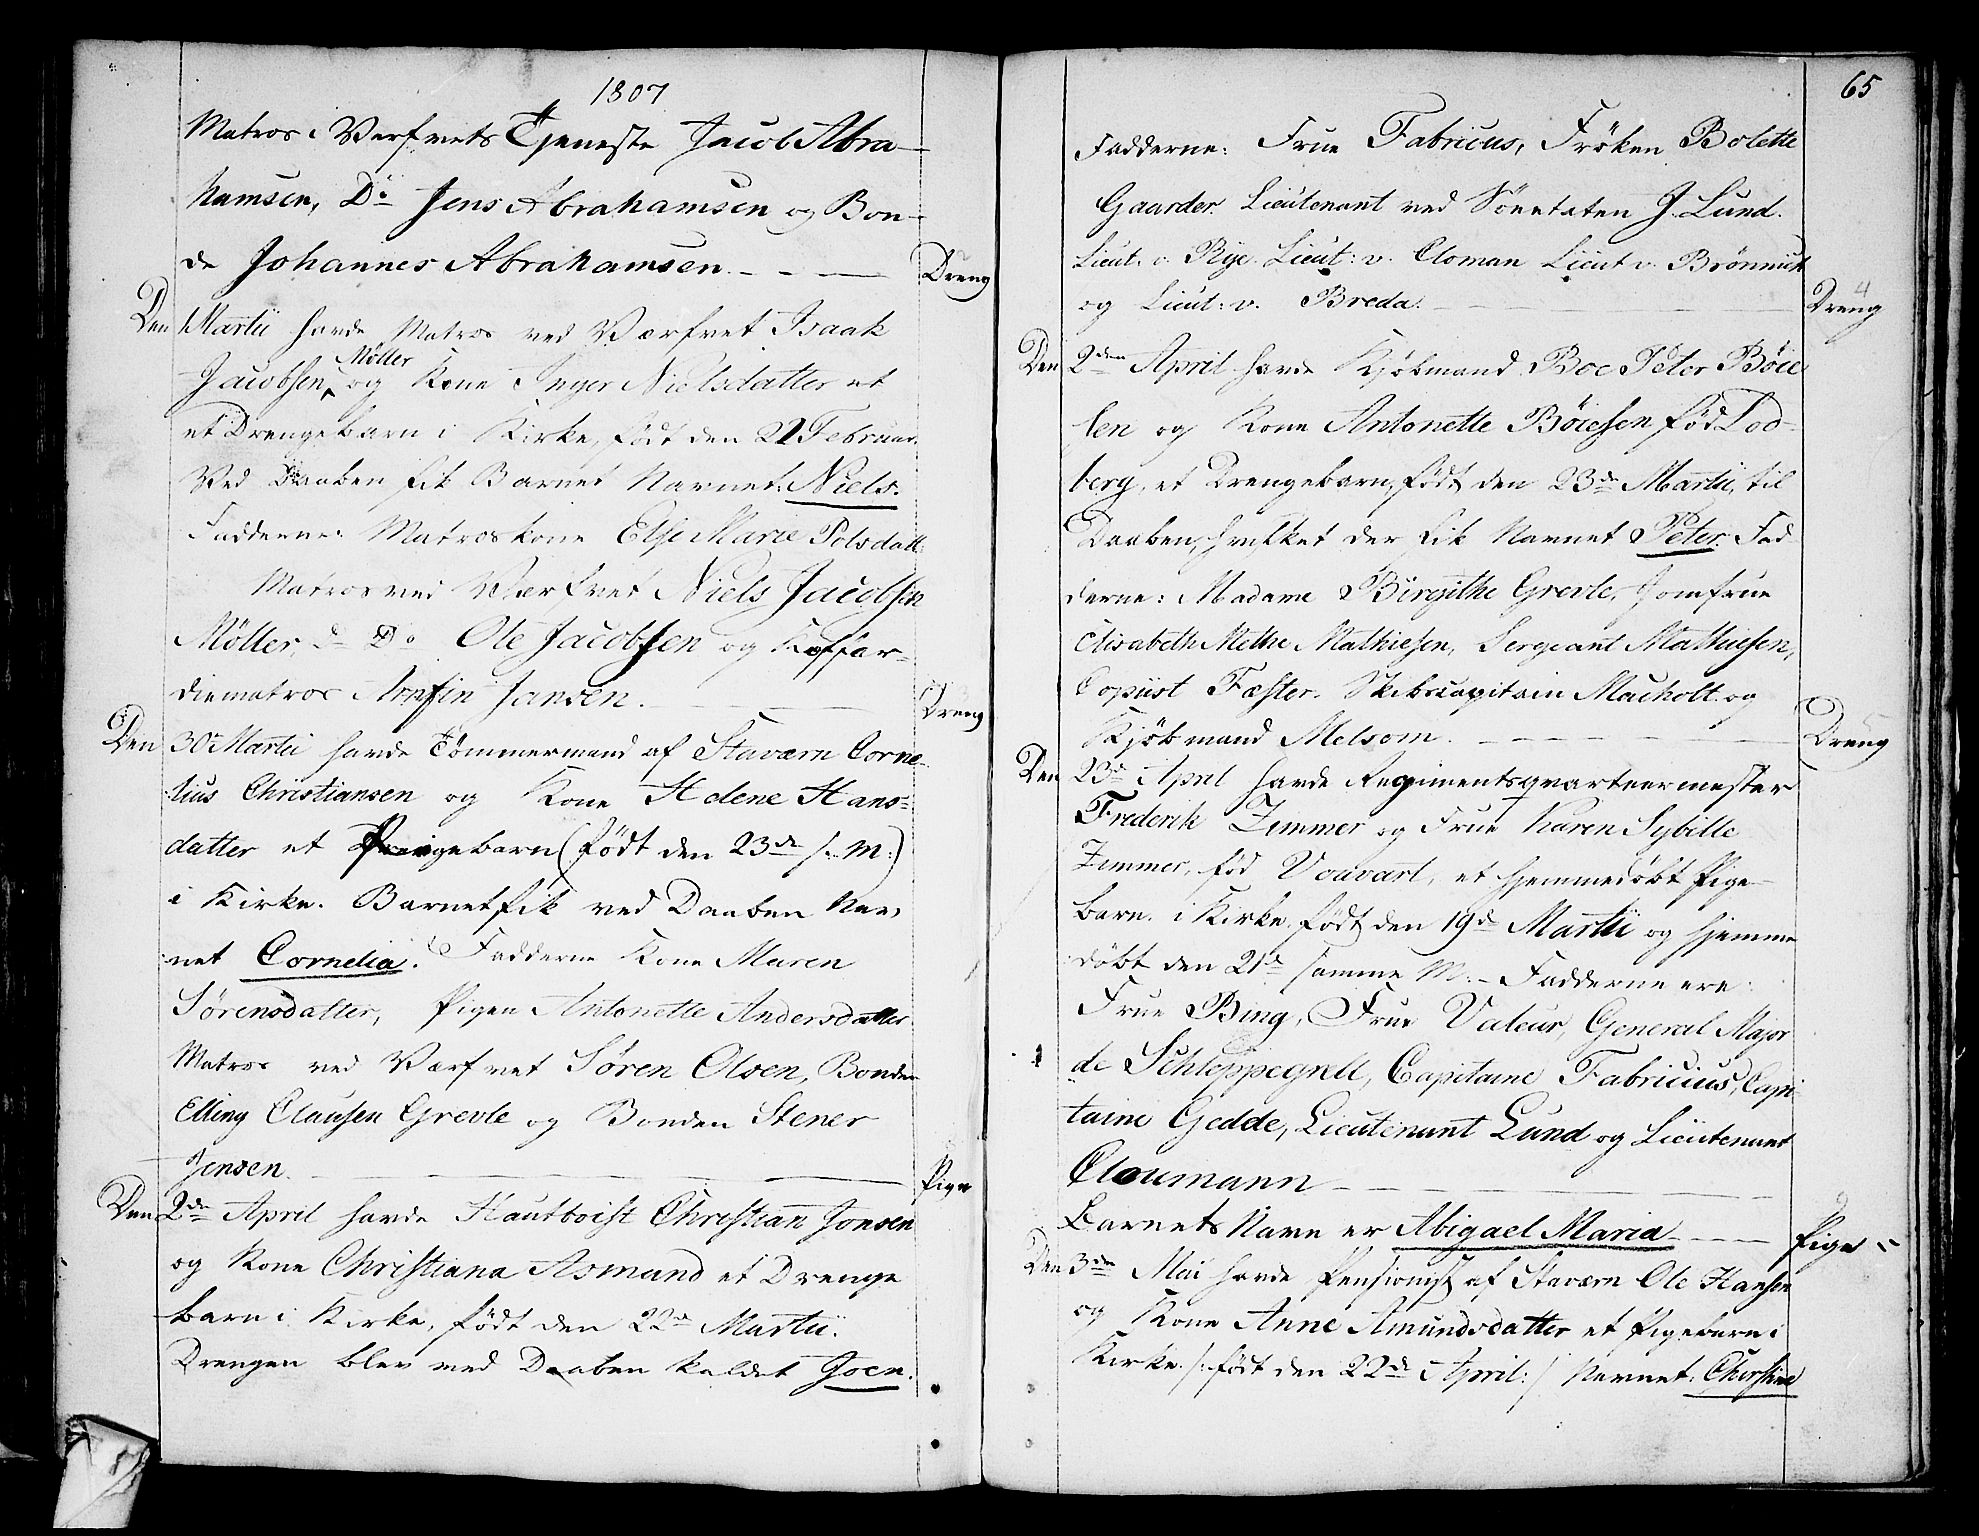 1807
Matros i Verfvets Tjeneste Jacob Abra-
hamsen, Do Jens Abrahamsen og Bon-
de Johannes Abrahamsen. Dreng
Den Martii havde Matros ved Værfvet Isaak
Jacobsen Möller og Kone Inger Nielsdatter et
et Drengebarn i Kirke, födt den 22 Februar.
Ved Daaben fik Barnet Navnet: Niels.
Fadderne: Matroskone Else Marie Polsdatt.
Matros ved Værfvet Niels Jacobsen
Möller, Do Ole Jacobsen og Koffar-
diematros Arnfin Jansen. Dreng
Den 30te Martii havde Tömmermand af Staværn Corne-
lius Christiansen og Kone Helene Hans-
datter et Pigebarn (födt den 23de s. M:)
i Kirke. Barnet fik ved Daaben Nav-
net Cornelia. Fadderne Kone Maren
Sørensdatter, Pigen Antonette Andersdatter
Matros ved Værfvet Søren Olsen, Bonden
Elling Clausen Grevle og Bonden Stener
Jensen. Pige
Den 2den April havde Hautboist Christian Jonsen
og Kone Christiana Asmund et Drenge
barn i Kirke, födt den 22de Martii.
Drengen blev ved Daaben kaldet Joen.
65
Fadderne: Frue Fabricus, Fröken Bolette
Gaarder. Lieutenant ved Söeetaten J. Lund.
Lieut. v. Rye. Lieut: v. Cloman Lieut v. Brönnick
og Lieut: v. Breda. Dreng 4
Den 2den April havde Kjöbmand Boe Peter Böie
sen og Kone Antonette Böiesen föd Lod-
berg, et Drengebarn, födt den 23de Martii, til
Daaben, hvilket der fik Navnet Peter. Fad
derne: Madame Birgithe Grevle, Jomfrue
Elisabeth Methe Mathiesen, Sergeant Mathiesen,
Copiist Fæster. Skibscapitain Macholt og
Kjöbmand Melsom. Dreng
Den 23de April havde Regimentsqvarteermester
Frederik Zimmer og Frue Karen Sybille
Zimmer, föd Vouvart, et hjemmedöbt Pige-
barn. i Kirke, födt den 19de Martii og hjemme
döbt den 21de samme M: - Fadderne ere:
Frue Bing, Frue Valeur, General Major
de Schleppegrell, Capitaine Fabricius, Capi
taine Gedde, Lieutenant Lund og Lieutenant
Cloumann
Barnets Navn er Abigael Maria Pige
Den 3den Mai havde Pensionist af Staværn Ole Hansen
og Kone Anne Amundsdatter et Pigebarn i
Kirke /: födt den 22de April :/ Navnet: Christine